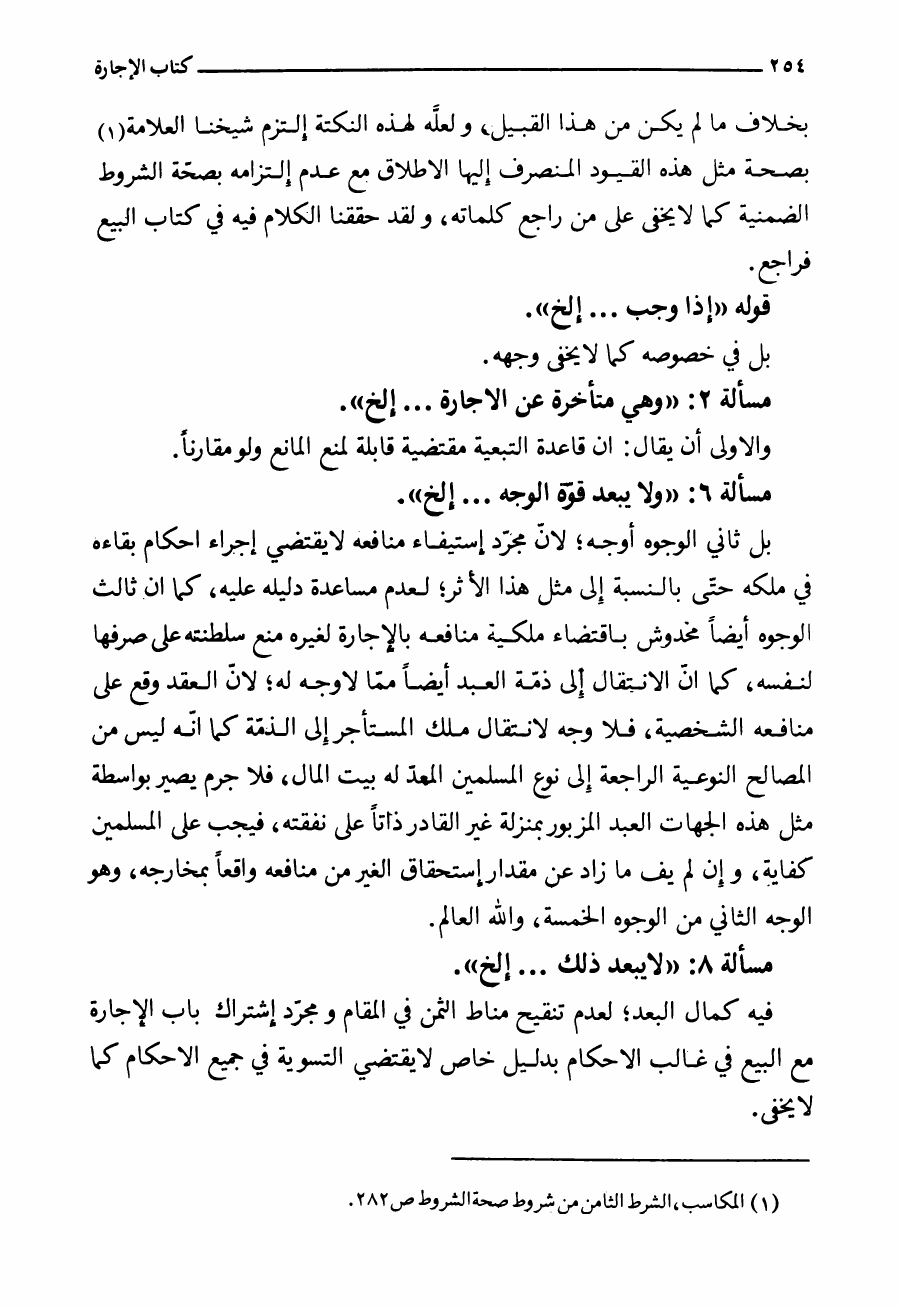 ٢٥٤ كتاب الإجارة
بخلاف ما لم يكن من هذا القبيل، و لعلَّه لهذه النكتة إلتزم شيخنا العلامة(١)
بصحة مثل هذه القيود المنصرف إليها الاطلاق مع عدم إلتزامه بصحّة الشروط
الضمنية كما لايخفى على من راجع كلماته، و لقد حققنا الكلام فيه في كتاب البيع
فراجع.
قوله «إذا وجب ... إلخ».
بل في خصوصه كما لايخفى وجهه.
مسألة ٢: «وهي متأخرة عن الاجارة ... إلخ».
والاولى أن يقال: ان قاعدة التبعية مقتضية قابلة لمنع المانع ولو مقارناً.
مسألة ٦: «ولا يبعد قوّة الوجه ... إلخ».
بل ثاني الوجوه أوجه؛ لانّ مجرّد إستيفاء منافعه لايقتضي إجراء احكام بقاءه
في ملكه حتّى بالنسبة إلى مثل هذا الأثر؛ لعدم مساعدة دليله عليه، كما ان ثالث
الوجوه أيضاً مخدوش باقتضاء ملكية منافعه بالإجارة لغيره منع سلطنته على صرفها
لنفسه، كما انّ الانتقال إلى ذمّة العبد أيضاً ممّا لاوجه له؛ لانّ العقد وقع على
منافعه الشخصية، فلا وجه لانتقال ملك المستأجر إلى الذمّة كما انّه ليس من
المصالح النوعية الراجعة إلى نوع المسلمين المعدّ له بيت المال، فلا جرم يصير بواسطة
مثل هذه الجهات العبد المزبور بمنزلة غير القادر ذاتاً على نفقته، فيجب على المسلمين
كفاية، و إن لم يف ما زاد عن مقدار إستحقاق الغير من منافعه واقعاً بمخارجه، وهو
الوجه الثاني من الوجوه الخمسة، والله العالم.
مسألة ٨: «لايبعد ذلك ... إلخ».
فيه كمال البعد؛ لعدم تنقيح مناط الثمن في المقام و مجرّد إشتراك باب الإجارة
مع البيع في غالب الاحكام بدليل خاص لايقتضي التسوية في جميع الاحكام كما
لايخفى.
(١) المكاسب، الشرط الثامن من شروط صحة الشروط ص٢٨٢.